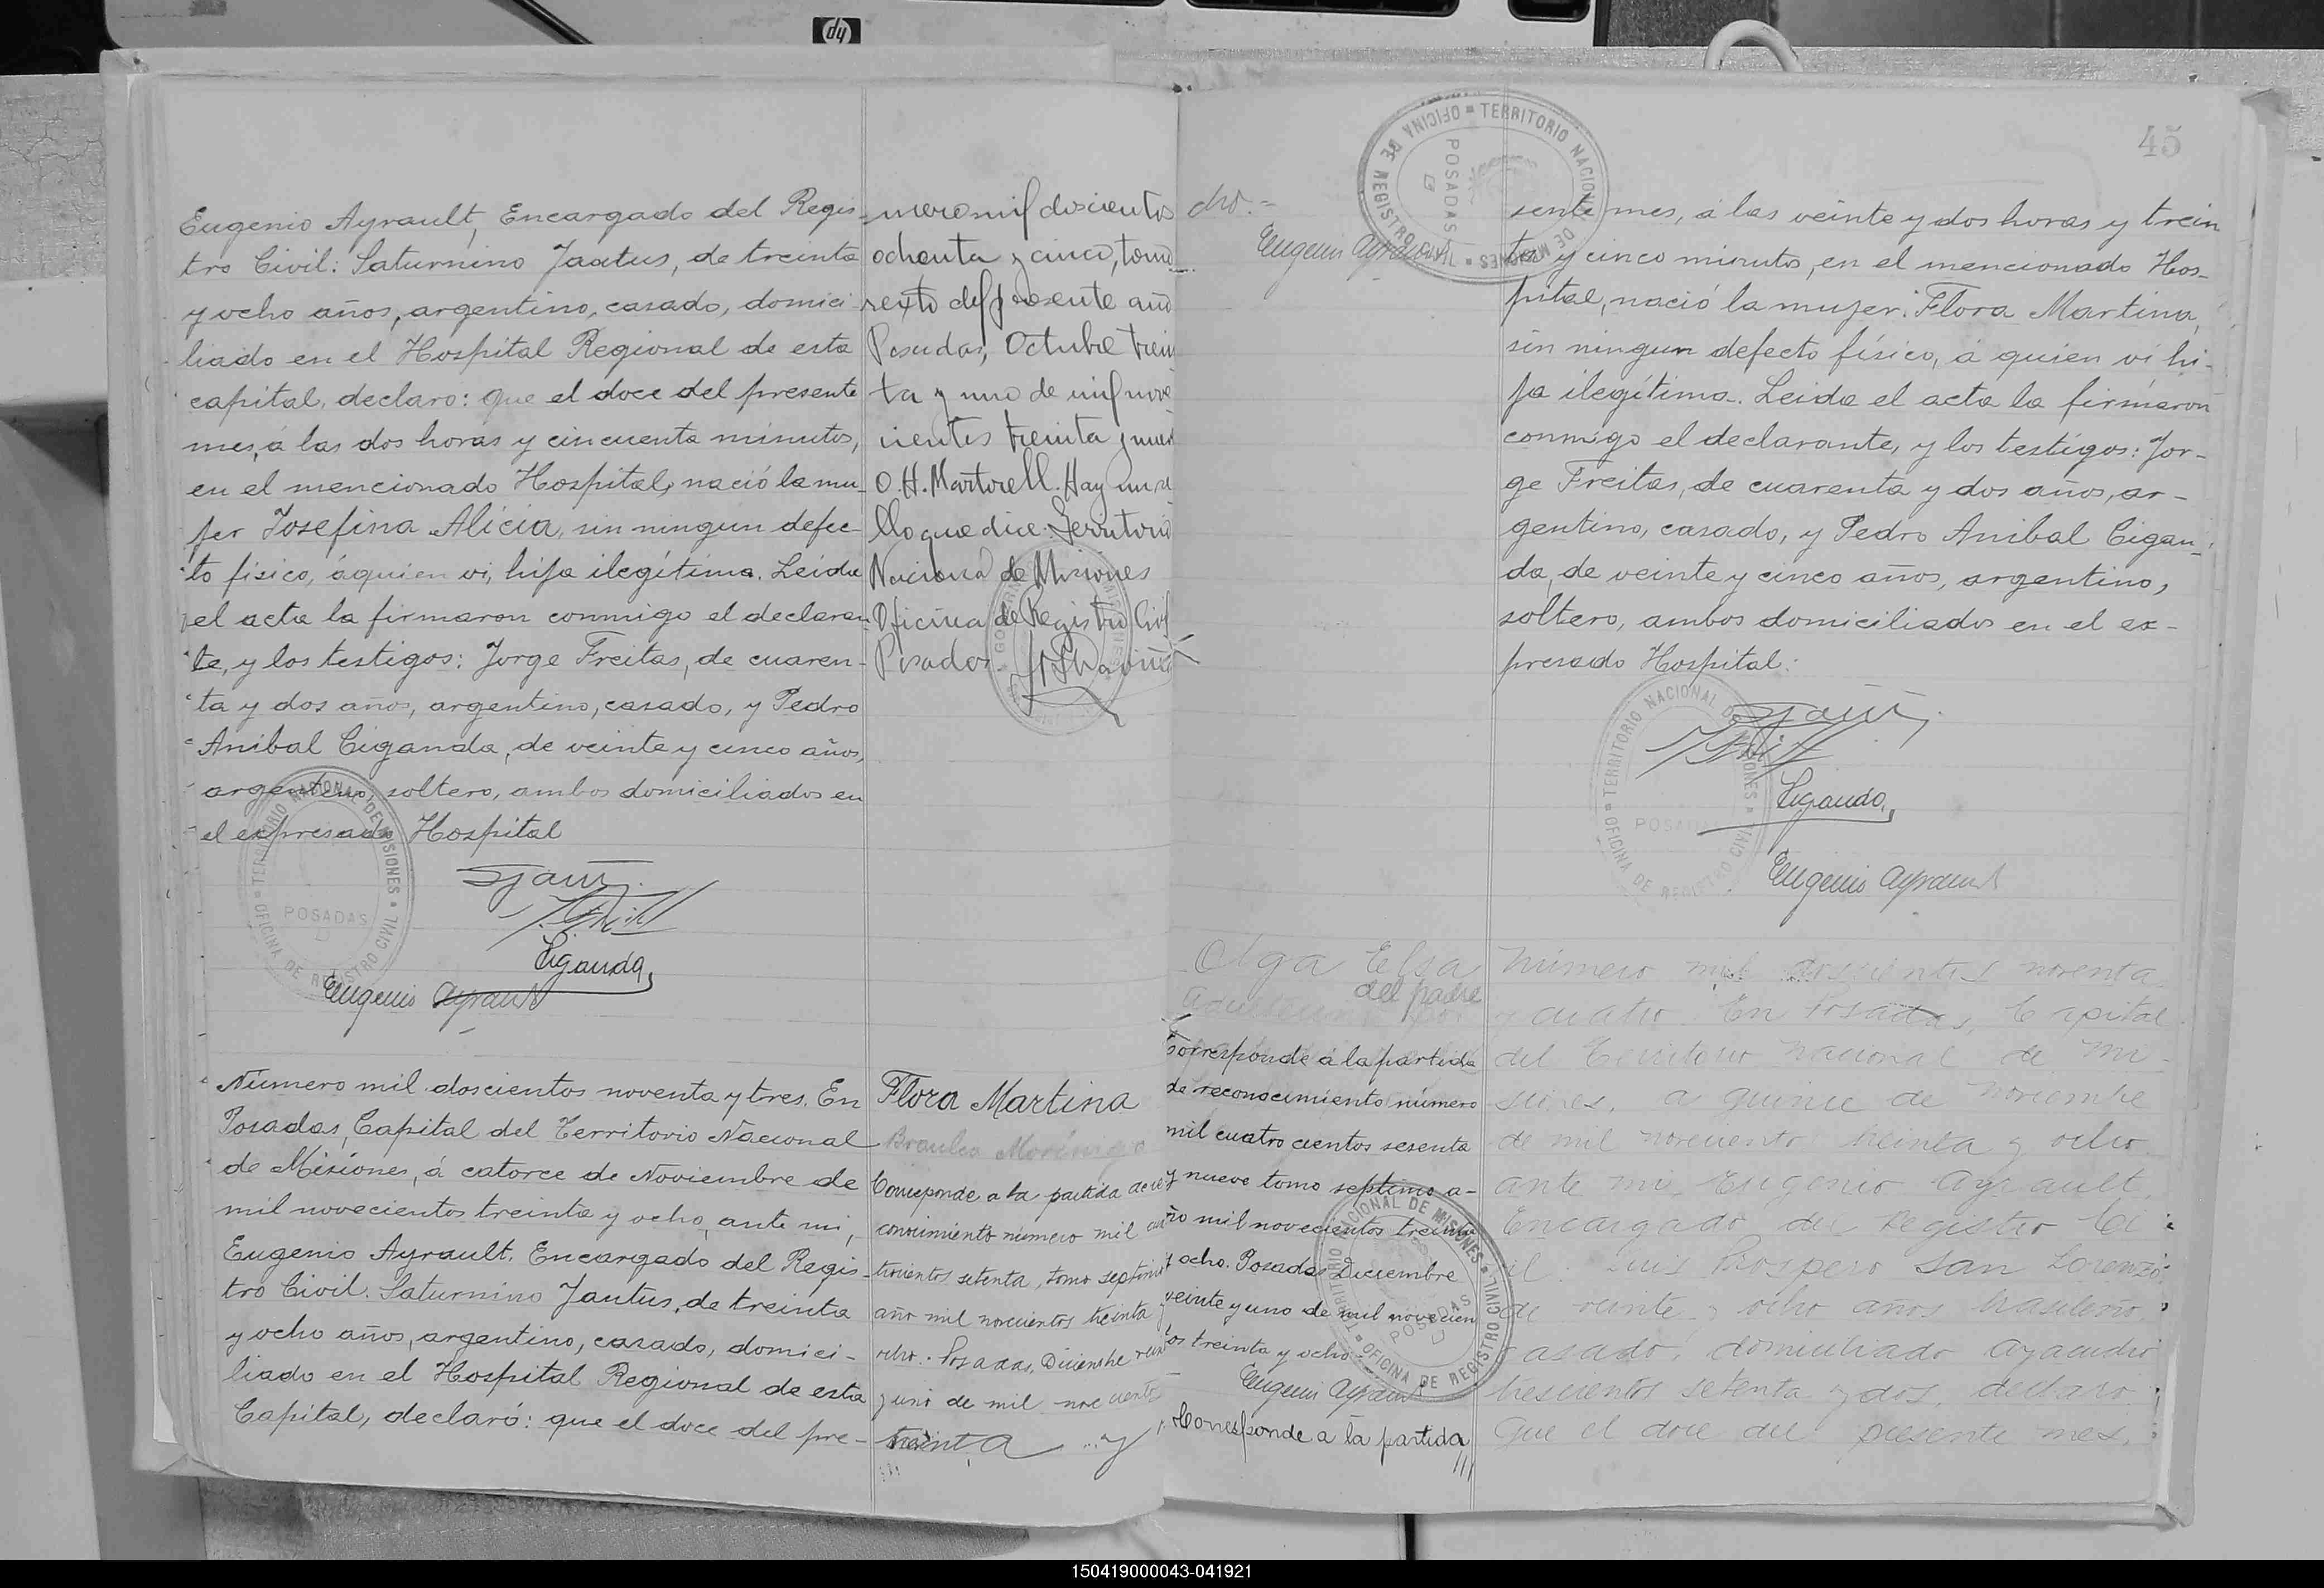 Eugenio Ayrault, Encargado del Regis-
tro Civil: Saturnino Jantus, de treinta
y ocho años, argentino, casado, domici-
liado en el Hospital Regional de esta
capital, declaro: que el doce del presente
mes, á las dos horas y cincuenta minutos,
en el mencionado Hospital, nació la mu-
jer Josefina Alicia, sin ningun defec-
to físico, á quien vi, hija ilegítima. Leida
el acta la firmaron conmigo el declaran-
te, y los testigos: Jorge Freitas, de cuaren-
ta y dos años, argentino, casado, y Pedro
Anibal Ciganda, de veinte y cinco años,
argentino, soltero, ambos domiciliados en
el expresado Hospital
Ciganda
Eugenio Ayrault
TERRITORIO NACIONAL DE MISIONES
POSADAS
OFICINA DE REGISTRO CIVIL
Número mil doscientos noventa y tres. En
Posadas, Capital del Territorio Nacional
de Misiones, á catorce de Noviembre de
mil novecientos treinta y ocho, ante mi,
Eugenio Ayrault. Encargado del Regis-
tro Civil. Saturnino Jantus, de treinta
y ocho años, argentino, casado, domici-
liado en el Hospital Regional de esta
Capital, declaró: que el doce del pre-
mero mil doscientos
ochenta y cinco, tomo
sexto del presente año
Posadas, Octubre trein
ta y uno de mil nove
cientos treinta y nuev
O. H. Martorell. Hay un se
llo que dice: Territorio
Nacional de Misiones
Oficina de Registro Civil
Posadas
Flora Martina
Braulia Morinigo
Corresponde a la partida de re
conocimiento número mil cua
trocientos setenta, tomo septimo
año mil novecientos treinta y
ocho. Posadas, Diciembre vein
y uno de mil novecientos
treinta y
cho.-
Eugenio Ayrault
TERRITORIO NACIONAL DE MISIONES
POSADAS
G
OFICINA DE REGISTRO CIVIL
Olga Elsa
del padre
Corresponde á la partida
de reconocimiento número
mil cuatro cientos sesenta
y nueve tomo septimo a-
ño mil novecientos treinta
y ocho. Posadas Diciembre
veinte y uno de mil novecien
tos treinta y ocho.
Eugenio Ayrault
TERRITORIO NACIONAL DE MISIONES
POSADAS
OFICINA DE REGISTRO CIVIL
Corresponde a la partida
///
45
sente mes, á las veinte y dos horas y trein
ta y cinco minutos, en el mencionado Hos-
pital, nació la mujer: Flora Martina,
sin ningun defecto físico, á quien vi hi-
ja ilegítima. Leida el acta la firmaron
conmigo el declarante, y los testigos: Jor-
ge Freitas, de cuarenta y dos años, ar-
gentino, casado, y Pedro Anibal Cigan-
da, de veinte y cinco años, argentino,
soltero, ambos domiciliados en el ex-
presado Hospital:
Ciganda
Eugenio Ayrault
TERRITORIO NACIONAL DE MISIONES
POSADAS
OFICINA DE REGISTRO CIVIL
Número mil doscientos noventa
y cuatro. En Posadas, Capital
del Territorio Nacional de Mi-
siones, a quince de Noviembre
de mil novecientos treinta y ocho
ante mi Eugenio Ayrault,
Encargado del Registro Ci
vil: Luis Prospero San Lorenzo,
de veinte y ocho años brasileño,
casado, domiciliado Ayacucho
trescientos setenta y dos, declaro:
Que el doce del presente mes,
150419000043-041921